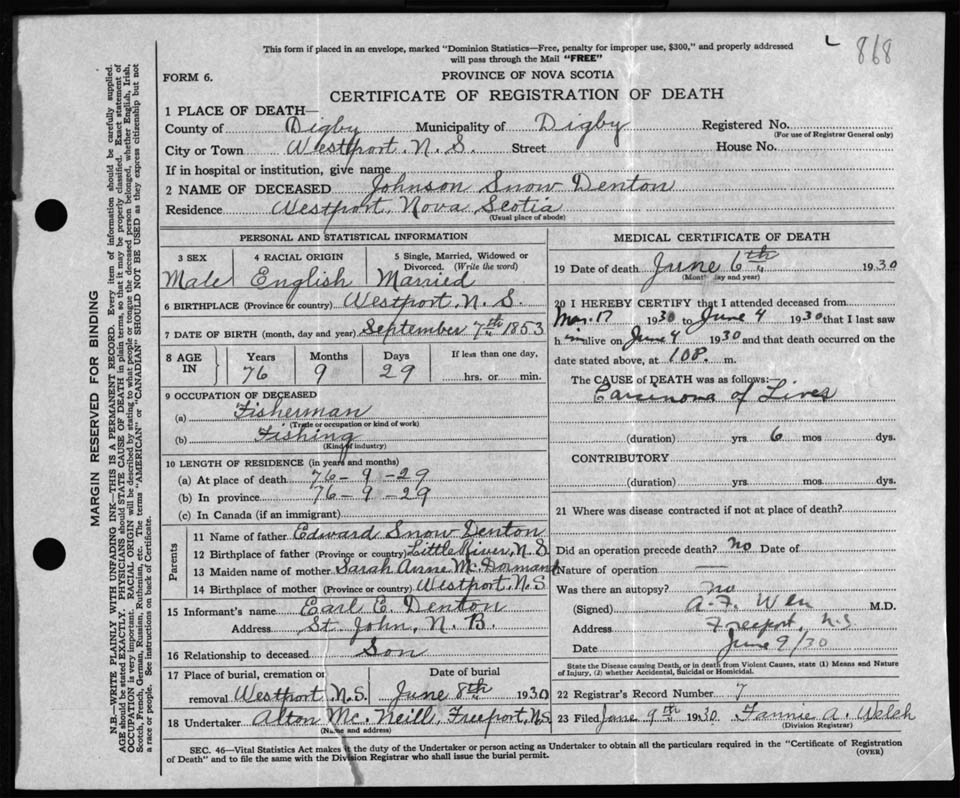 This form if placed in an envelope, marked "Dominion Statistics—Free, penalty for improper use, $300," and properly addressed
will pass through the Mail "FREE"
L 868
FORM 6.
PROVINCE OF NOVA SCOTIA
CERTIFICATE OF REGISTRATION OF DEATH
1 PLACE OF DEATH—
County of Digby Municipality of Digby Registered No.
(For use of Registrar General only)
City or Town Westport, N. S. Street House No.
If in hospital or institution, give name
2 NAME OF DECEASED Johnson Snow Denton
Residence Westport, Nova Scotia
(Usual place of abode)
PERSONAL AND STATISTICAL INFORMATION
3 SEX 4 RACIAL ORIGIN 5 Single, Married, Widowed or Divorced. (Write the word)
Male English Married
6 BIRTHPLACE (Province or country) Westport, N. S.
7 DATE OF BIRTH (month, day and year) September 7th 1853
8 AGE IN Years Months Days If less than one day,
76 9 29 hrs. or min.
9 OCCUPATION OF DECEASED
(a) Fisherman
(Trade or occupation or kind of work)
(b) Fishing
(Kind of industry)
10 LENGTH OF RESIDENCE (in years and months)
(a) At place of death 76 - 9 - 29
(b) In province 76 - 9 - 29
(c) In Canada (if an immigrant)
Parents
11 Name of father Edward Snow Denton
12 Birthplace of father (Province or country) Little River, N. S
13 Maiden name of mother Sarah Anne Mc. Dormand
14 Birthplace of mother (Province or country) Westport, N. S
15 Informant's name Earl E. Denton
Address St. John, N. B.
16 Relationship to deceased Son
17 Place of burial, cremation or removal Westport N. S. Date of burial June 8th 1930
18 Undertaker Alton Mc. Neill, Freeport, N.S
(Name and address)
MEDICAL CERTIFICATE OF DEATH
19 Date of death June 6th 1930
(Month, day and year)
20 I HEREBY CERTIFY that I attended deceased from
Mar. 17 1930 to June 4 1930 that I last saw
h im alive on June 4 1930 and that death occurred on the
date stated above, at 108. m.
The CAUSE of DEATH was as follows:—
Carcinoma of Liver
(duration) yrs. 6 mos. dys.
CONTRIBUTORY
(duration) yrs. mos. dys.
21 Where was disease contracted if not at place of death?
Did an operation precede death? No Date of
Nature of operation —
Was there an autopsy? No
(Signed) A. F. M.D.
Address Freeport, N.S
Date June 9/30
State the Disease causing Death, or in death from Violent Causes, state (1) Means and Nature
of Injury, (2) whether Accidental, Suicidal or Homicidal.
22 Registrar's Record Number 7
23 Filed June 9th 1930. Fannie A. Welch
(Division Registrar)
SEC. 46—Vital Statistics Act makes it the duty of the Undertaker or person acting as Undertaker to obtain all the particulars required in the "Certificate of Registration
of Death" and to file the same with the Division Registrar who shall issue the burial permit. (OVER)
MARGIN RESERVED FOR BINDING
N.B.—WRITE PLAINLY WITH UNFADING INK—THIS IS A PERMANENT RECORD. Every item of information should be carefully supplied.
AGE should be stated EXACTLY. PHYSICIANS should STATE CAUSE OF DEATH in plain terms, so that it may be properly classified. Exact statement of
OCCUPATION is very important. RACIAL ORIGIN will be described by stating to what people or tongue the deceased person belonged, whether English, Irish,
Scotch, French, German, Russian, Ruthenian, etc. The terms "AMERICAN" or "CANADIAN" SHOULD NOT BE USED as they express citizenship but not
a race or people. See instructions on back of Certificate.